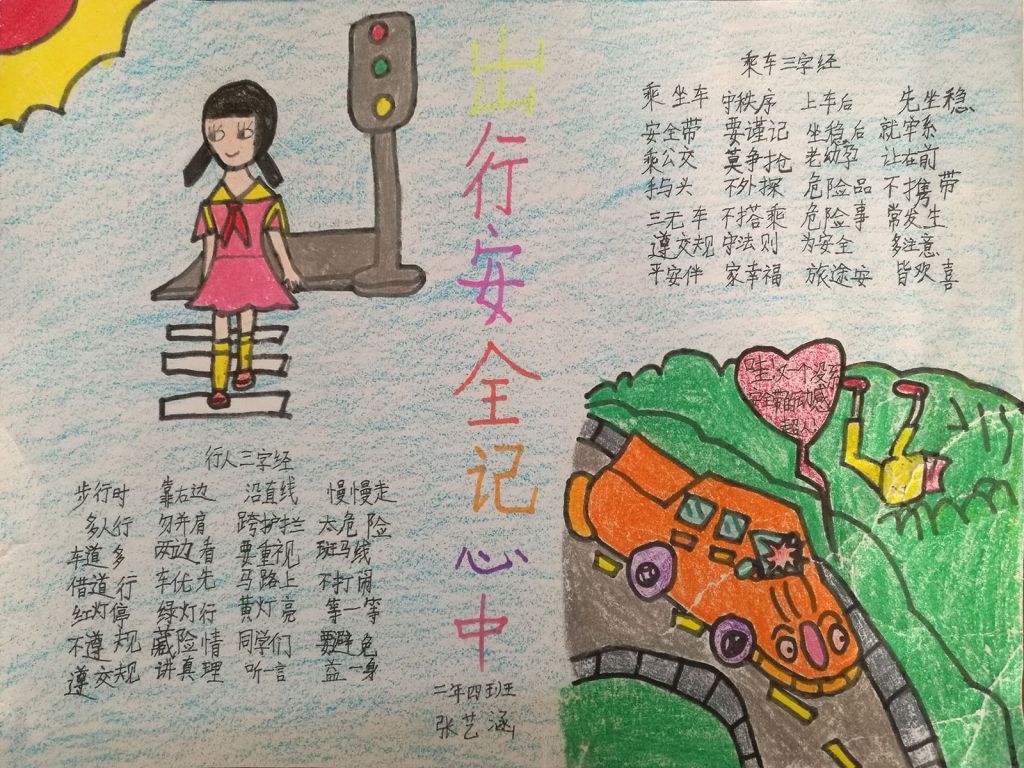 出行安全记心中
乘车三字经
乘坐车 守秩序 上车后 先坐稳
安全带 要谨记 坐稳后 就牢系
乘公交 莫争抢 老幼孕 让在前
手与头 不外探 危险品 不携带
三无车 不搭乘 危险事 常发生
遵交规 守法则 为安全 多注意
平安伴 家幸福 旅途安 皆欢喜
哇!又一个没系
安全带的动感
超人!
行人三字经
步行时 靠右边 沿直线 慢慢走
多人行 勿并肩 跨护拦 太危险
车道多 两边看 要重视 斑马线
借道行 车优先 马路上 不打闹
红灯停 绿灯行 黄灯亮 等一等
不遵规 藏险情 同学们 要避免
遵交规 讲真理 听一言 益一身
二年四班
张艺涵